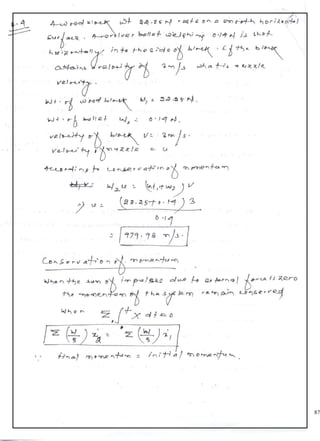 A wood block wt 22.25 N. rests on a smooth horizontal
surface. A revolver bullet weighing 0.14 N is shot
horizontally into the side of block. If the block
attains a velocity of 3 m/s what is muzzle
velocity.
wt. of wood block W₁ = 22.25 N.
wt. of bullet W₂ = 0.14 N.
velocity of block v = 3 m/s.
velocity of muzzle = u
According to conservation of momentum
W₂u = (W₁+W₂) v
⇒ u = (22.25+0.14) 3
0.14
= 479.98 m/s.
Conservation of momentum
When the sum of impulses due to external force is zero
the momentum of the system remain conserved
When Σ ∫ X dt = 0
Σ (W/g) ẋ₂ = Σ (W/g) ẋ₁
∵ final momentum = initial momentum.
87